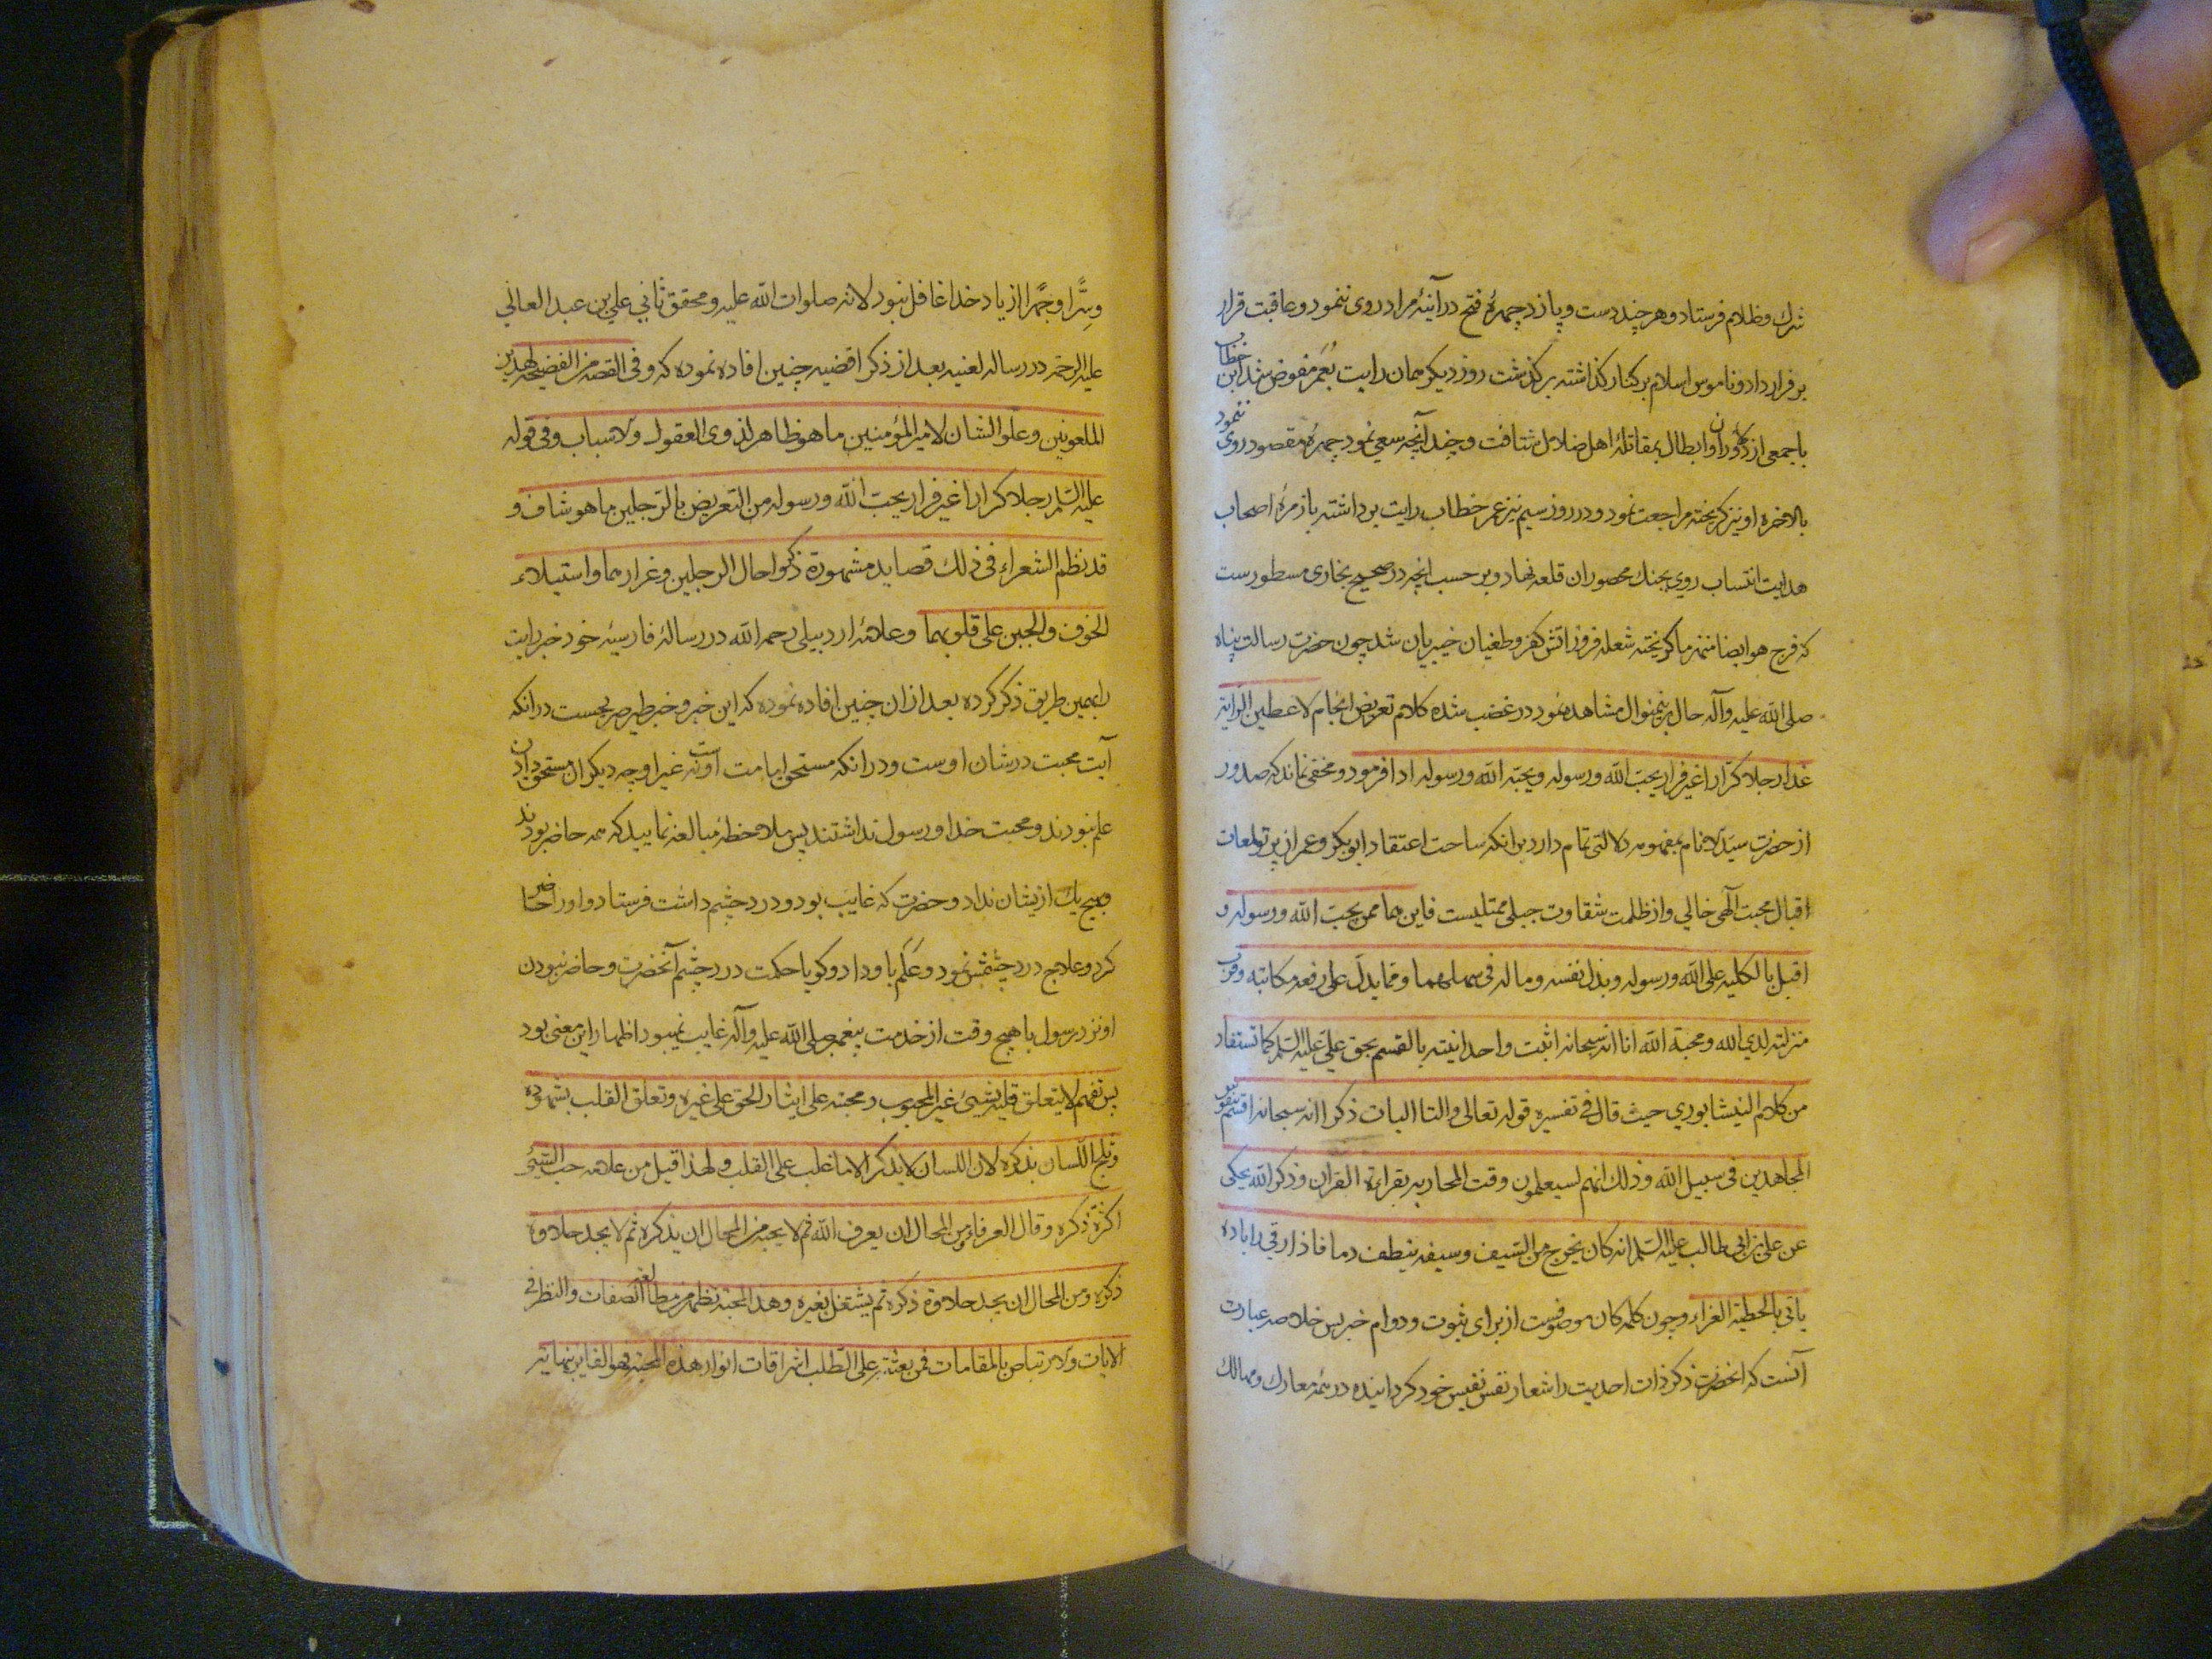 شرك وظلام فرستاد وهر چند دست و پا زد چهرهٔ فتح در آینهٔ مراد روی ننمود و عاقبت قرار
بر فرار داد و ناموس اسلام بر کنار گذاشته برگذشت روز دیگر همان رایت بعمر مفوض شد ابن خطاب
با جمعی از دلاوران و ابطال بمقاتلهٔ اهل ضلال شتافت و چندانچه سعی نمود چهرهٔ مقصود روی ننمود
بالاخره او نیز گریخته مراجعت نمود و در روز سیم نیز عمر خطاب رایت برداشته با زمرهٔ اصحاب
هدایت انتساب روی بجنك محصوران قلعه نهاد و بر حسب انچه در صحیح بخاری مسطورست
که فرجع هو ایضا منهزما گریخته شعله فروز اتش کفر و طغیان خیبریان شد چون حضرت رسالت پناه
صلی الله علیه وآله حال برینمنوال مشاهده نمود در غضب شده کلام تعریض انجام لاعطین الرایة
غدا رجلا کرّارا غیر فرار یحبّ الله ورسوله ویحبّه الله ورسوله ادا فرمود و مخفی نماند که صدور
از حضرت سیّد الانام بمفهومه دلالتی تمام دارد بر انکه ساحت اعتقاد ابوبکر و عمر از پرتو لمعات
اقبال محبت الهی خالی و از ظلمت شقاوت جبلی ممتلیست فاین هما ممن یحبّ الله ورسوله و
اقبل بالکلیه علی الله ورسوله وبذل نفسه وماله فی سبیلهما وممّا یدلّ علی رفعه مکانته وقرب
منزلته لدی الله ومحبة الله انا انه سبحانه اثبت واحدانیته بالقسم بحق علی علیه السّلم کما تستفاد
من کلام النیشابوری حیث قال فی تفسیره قوله تعالی والتالیات ذکرا انه سبحانه اقسم بنفوس
المجاهدین فی سبیل الله وذلك انهم لسیعلمون وقت المحاربه بقراءة القران وذکر الله یحکی
عن علی بن ابی طالب علیه السّلم انه کان یخرج من السّیف وسیفه ینطف دما فاذا رقی
یاتی بالخطبة الغراء و چون کلمه کان موضوعست از برای ثبوت و دوام خبر پس خلاصه عبارت
آنست که انحضرت ذکر ذات احدیت را شعار نفس نفیس خود گردانیده در همهٔ معارك و مهالك
وسرّا وجهرا از یاد خدا غافل نبود لانه صلوات الله علیه و محقق ثانی علی بن عبد العالی
علیه الرحمه در رساله لغنیه بعد از ذکر اقضیه چنین افاده نموده که وفی القصه من الفضیحه لهذین
الملعونین وعلوّ الشان لامیر المؤمنین ما هو ظاهر لذوی العقول والاسباب وفی قوله
علیه السّلم رجلا کرارا غیر فرار یحبّ الله ورسوله من التعریض بالرّجلین ما هو شاف و
قد نظم الشعراء فی ذلك قصاید مشهورة ذکروا حال الرجلین وغرارهما واستیلاء
الخوف والجبن علی قلوبهما وعلامهٔ اردبیلی رحمه الله در رسالهٔ فارسیه خود خبر رایت
را بهمین طریق ذکر کرده بعد از ان چنین افاده نموده که این خبر و خبر طیر صریحست در انکه
آیت محبت در شان اوست و در انکه مستحق امامت اوست نه غیر او چه دیگران مستحق دادن
علم نبودند و محبت خدا و رسول نداشتند پس ملاحظهٔ مبالغه نمایید که همه حاضر بودند
وبهیچ یك از یشان نداد و حضرت که غایب بود و درد چشم داشت فرستاد و او را حاضر
کرد و علاج درد چشمش نمود و عَلَم باو داد و گویا حکمت درد چشم آنحضرت و حاضر نبودن
او نزد رسول با هیچ وقت از خدمت پیغمبر صلی الله علیه وآله غایب نمیبود اظهار این معنی بود
پس تفهم لا یتعلق قلبه بشیئ غیر المحبوب ومحبته علی ایثار الحق علی غیره وتعلق القلب بشهوده
وتلهج اللسان بذکره لان اللسان لا یذکر الا ما غلب علی القلب ولهذا قیل من علامه حب الشیئ
اکثرة ذکره وقال العرفاء من المحال ان یعرف الله ثم لا یحبه ومن المحال ان یذکره ثم لا یجد حلاوة
ذکره ومن المحال ان یجد حلاوة ذکره ثم یشتغل بغیره وهذا المحبه تظهر من مطالعه الصفات والنظر فی
الایات والارتیاض بالمقامات فمن بعثته علی الطّلب اشراقات انوار هذه المحبه فهو الفایز بنهایة